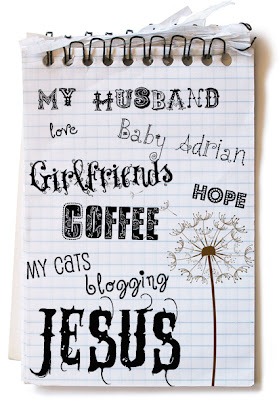 My Husband
love
Baby Adrian
Girlfriends
HOPE
COFFEE
MY CATS
blogging
JESUS